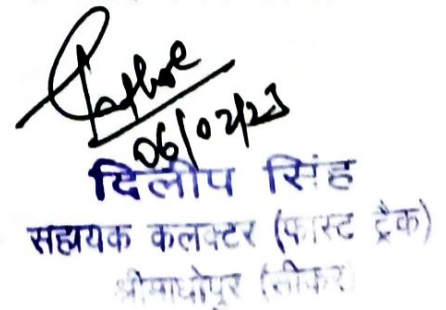 06/02/23
दिलीप सिंह
सहायक कलक्टर (फास्ट ट्रैक)
श्रीमाधोपुर (सीकर)